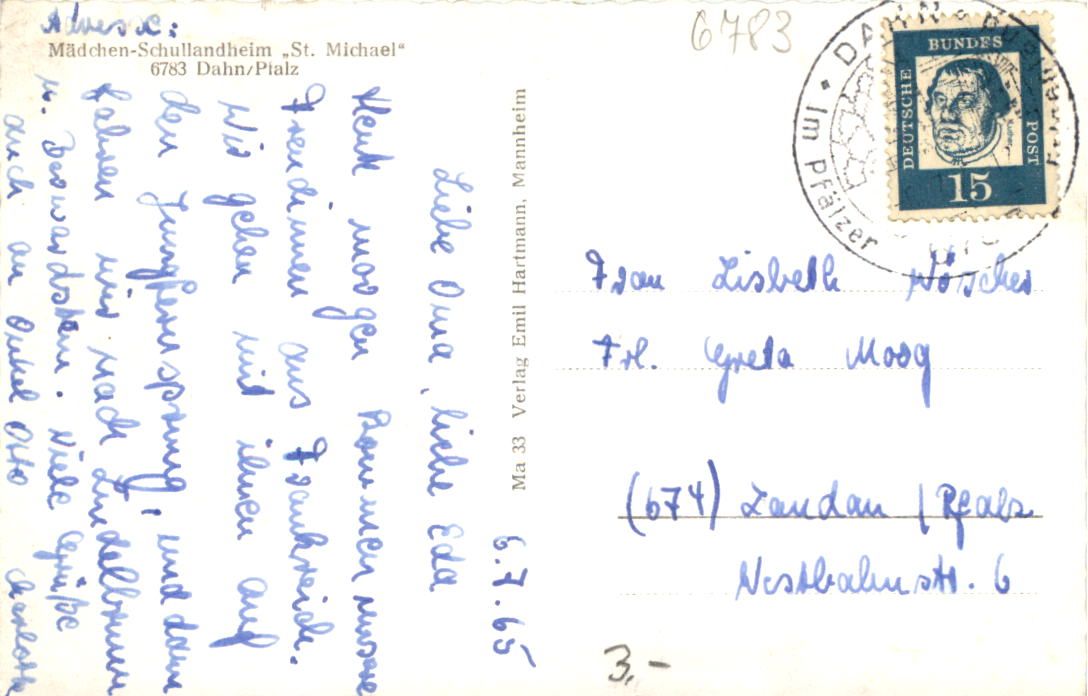 Adresse:
Mädchen-Schullandheim „St. Michael“
6783 Dahn/Pfalz
6.7.65
Liebe Oma, liebe Eda
Heute morgen kommen unsere
Freundinnen aus Frankreich.
Wir gehen mit ihnen auf
den Jungfernsprung, und dann
fahren wir nach Lindelbrunn
u. Viele Grüße
auch an Onkel Otto
Ma 33 Verlag Emil Hartmann, Mannheim
6783
DAHN
Im Pfälzer
DEUTSCHE
BUNDES
POST
15
Frau Lisbeth
Frl. Greta Moog
(674) Landau / Pfalz
Westbahnstr. 6
3,-